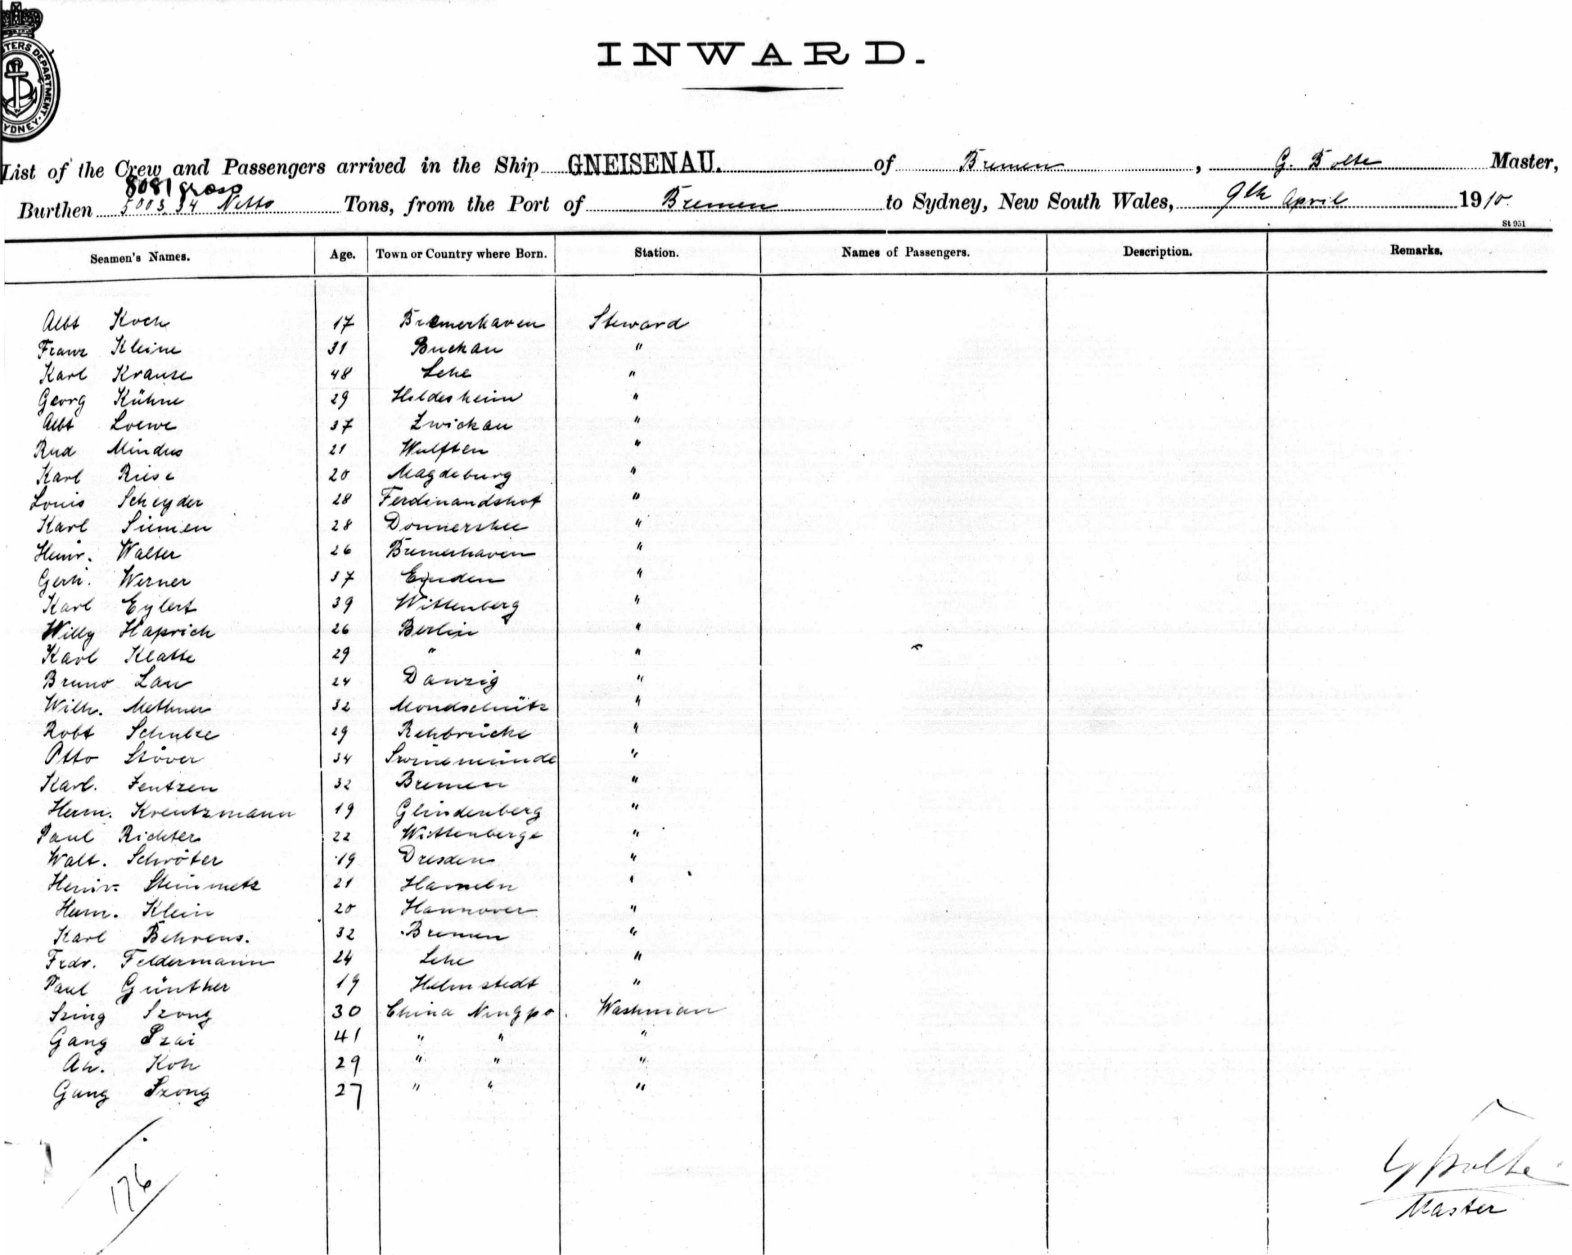 INWARD.
List of the Crew and Passengers arrived in the Ship GNEISENAU. of Bremen, G. Bolte Master,
8081 gross
Burthen 5003.34 Netto Tons, from the Port of Bremen to Sydney, New South Wales, 9th April 1910.
St 951
Seamen's Names. Age. Town or Country where Born. Station. Names of Passengers. Description. Remarks.
Albt Koch 17 Bremerhaven Steward
Franz Kleine 31 Buckau "
Karl Krause 48 Lehe "
Georg Kühne 29 Hildesheim "
Albt Loewe 37 Zwickau "
Rud Mindus 21 Wulften "
Karl Riese 20 Magdeburg "
Louis Scheyder 28 Ferdinandshof "
Karl Siemen 28 Donnerschee "
Heinr. Walter 26 Bremerhaven "
Gerh. Werner 37 Emden "
Karl Eylert 39 Wittenberg "
Willy Haprich 26 Berlin "
Karl Klatte 29 " "
Bruno Lau 24 Danzig "
Wilh. Methner 32 Mondschütz "
Robt Schulze 29 Rehbrücke "
Otto Stöver 34 Swinemünde "
Karl. Jentzen 32 Bremen "
Herm. Kreutzmann 19 Glindenberg "
Paul Richter 22 Wittenberge "
Walt. Schröter 19 Dresden "
Heinr. Steinmetz 21 Hameln "
Herm. Klein 20 Hannover "
Karl Behrens. 32 Bremen "
Frdr. Feldermann 24 Lehe "
Paul Günther 19 Helmstedt "
Szing Szong 30 China Ningpo. Washman
Gang Szai 41 " " "
Ah. Koh 29 " " "
Gang Szong 27 " " "
126
G Bolte
Master